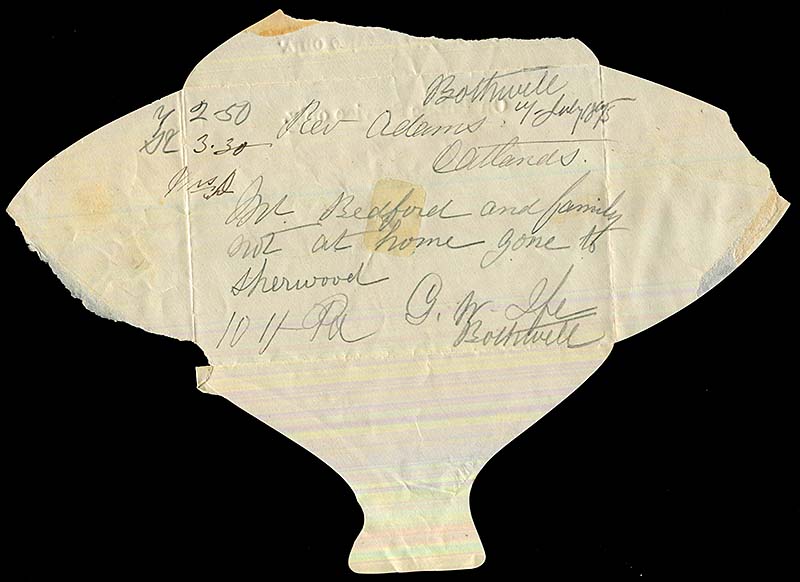 Bothwell
2-50 Rev Adams. 17 July 1895
3.30 Oatlands.
Mr. Bedford and family
not at home gone to
Sherwood
10 G. W. Ife
Bothwell